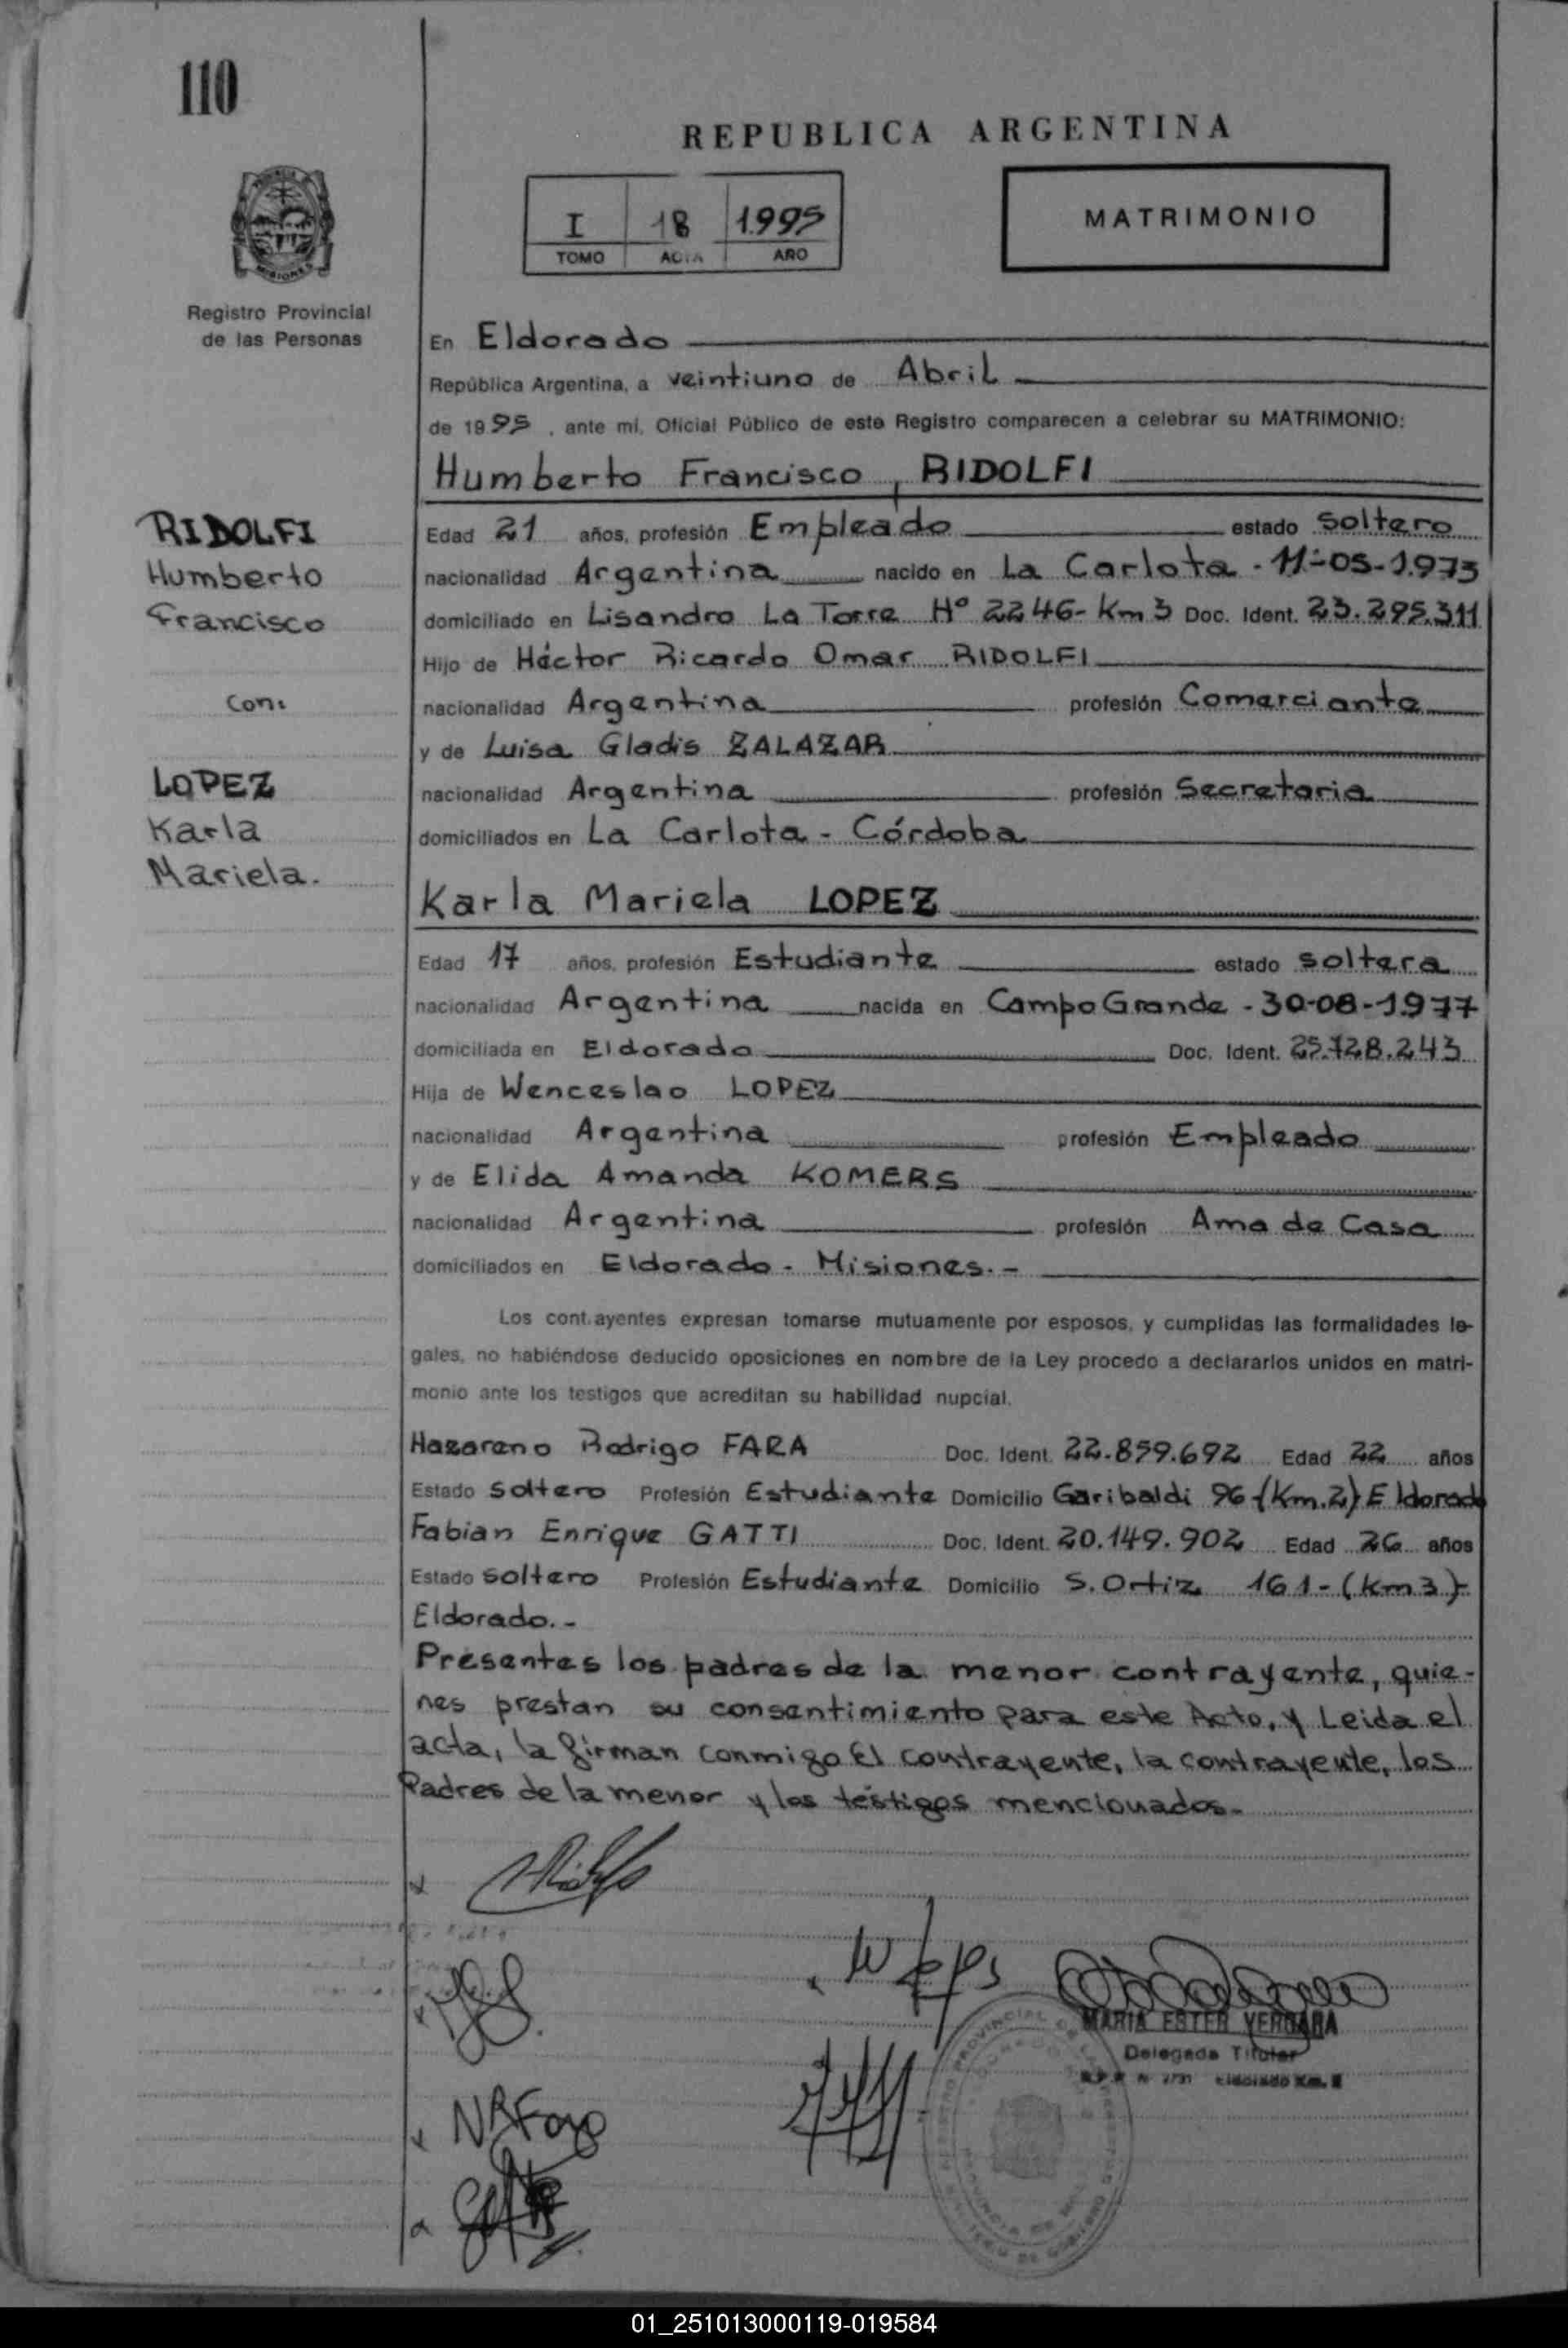 110
REPUBLICA ARGENTINA
I 18 1.995
TOMO ACTA AÑO
MATRIMONIO
MISIONES
Registro Provincial
de las Personas
En Eldorado
República Argentina, a veintiuno de Abril
de 1995, ante mí, Oficial Público de este Registro comparecen a celebrar su MATRIMONIO:
Humberto Francisco, RIDOLFI
RIDOLFI
Humberto
Francisco
Con:
LOPEZ
Karla
Mariela.
Edad 21 años, profesión Empleado estado soltero
nacionalidad Argentina nacido en La Carlota - 11-05-1.973
domiciliado en Lisandro La Torre Nº 2246- Km 3 Doc. Ident. 23.295.311
Hijo de Héctor Ricardo Omar RIDOLFI
nacionalidad Argentina profesión Comerciante
y de Luisa Gladis ZALAZAR
nacionalidad Argentina profesión Secretaria
domiciliados en La Carlota - Córdoba
Karla Mariela LOPEZ
Edad 17 años, profesión Estudiante estado soltera
nacionalidad Argentina nacida en Campo Grande - 30-08-1.977
domiciliada en Eldorado Doc. Ident. 25.728.243
Hija de Wenceslao LOPEZ
nacionalidad Argentina profesión Empleado
y de Elida Amanda KOMERS
nacionalidad Argentina profesión Ama de Casa
domiciliados en Eldorado - Misiones.-
Los contrayentes expresan tomarse mutuamente por esposos, y cumplidas las formalidades le-
gales, no habiéndose deducido oposiciones en nombre de la Ley procedo a declararlos unidos en matri-
monio ante los testigos que acreditan su habilidad nupcial.
Nazareno Rodrigo FARA Doc. Ident. 22.859.692 Edad 22 años
Estado soltero Profesión Estudiante Domicilio Garibaldi 96-(Km.2) Eldorado
Fabian Enrique GATTI Doc. Ident. 20.149.902 Edad 26 años
Estado soltero Profesión Estudiante Domicilio S. Ortiz 161-(Km3)-
Eldorado.-
Presentes los padres de la menor contrayente, quie-
nes prestan su consentimiento para este Acto, y Leida el
acta, la firman conmigo El contrayente, la contrayente, los
Padres de la menor y los testigos mencionados.-
MARIA ESTER VERGARA
Delegada Titular
01_251013000119-019584